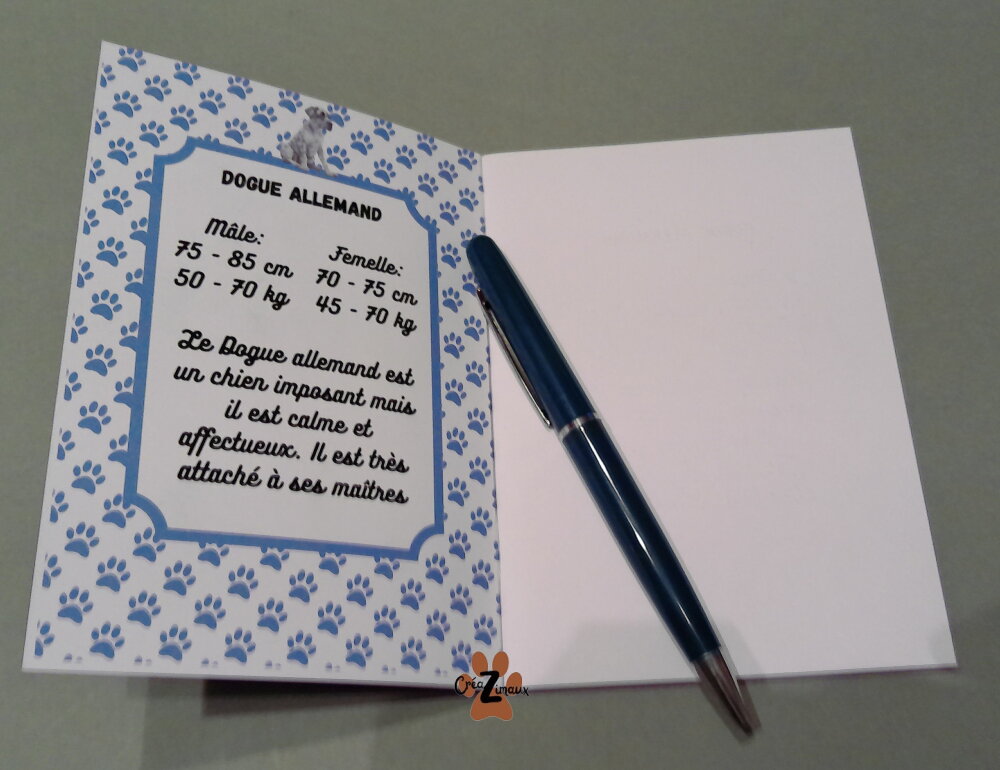 DOGUE ALLEMAND
Mâle:
75 - 85 cm
50 - 70 kg
Femelle:
70 - 75 cm
45 - 70 kg
Le Dogue allemand est
un chien imposant mais
il est calme et
affectueux. Il est très
attaché à ses maîtres
CréaZimaux